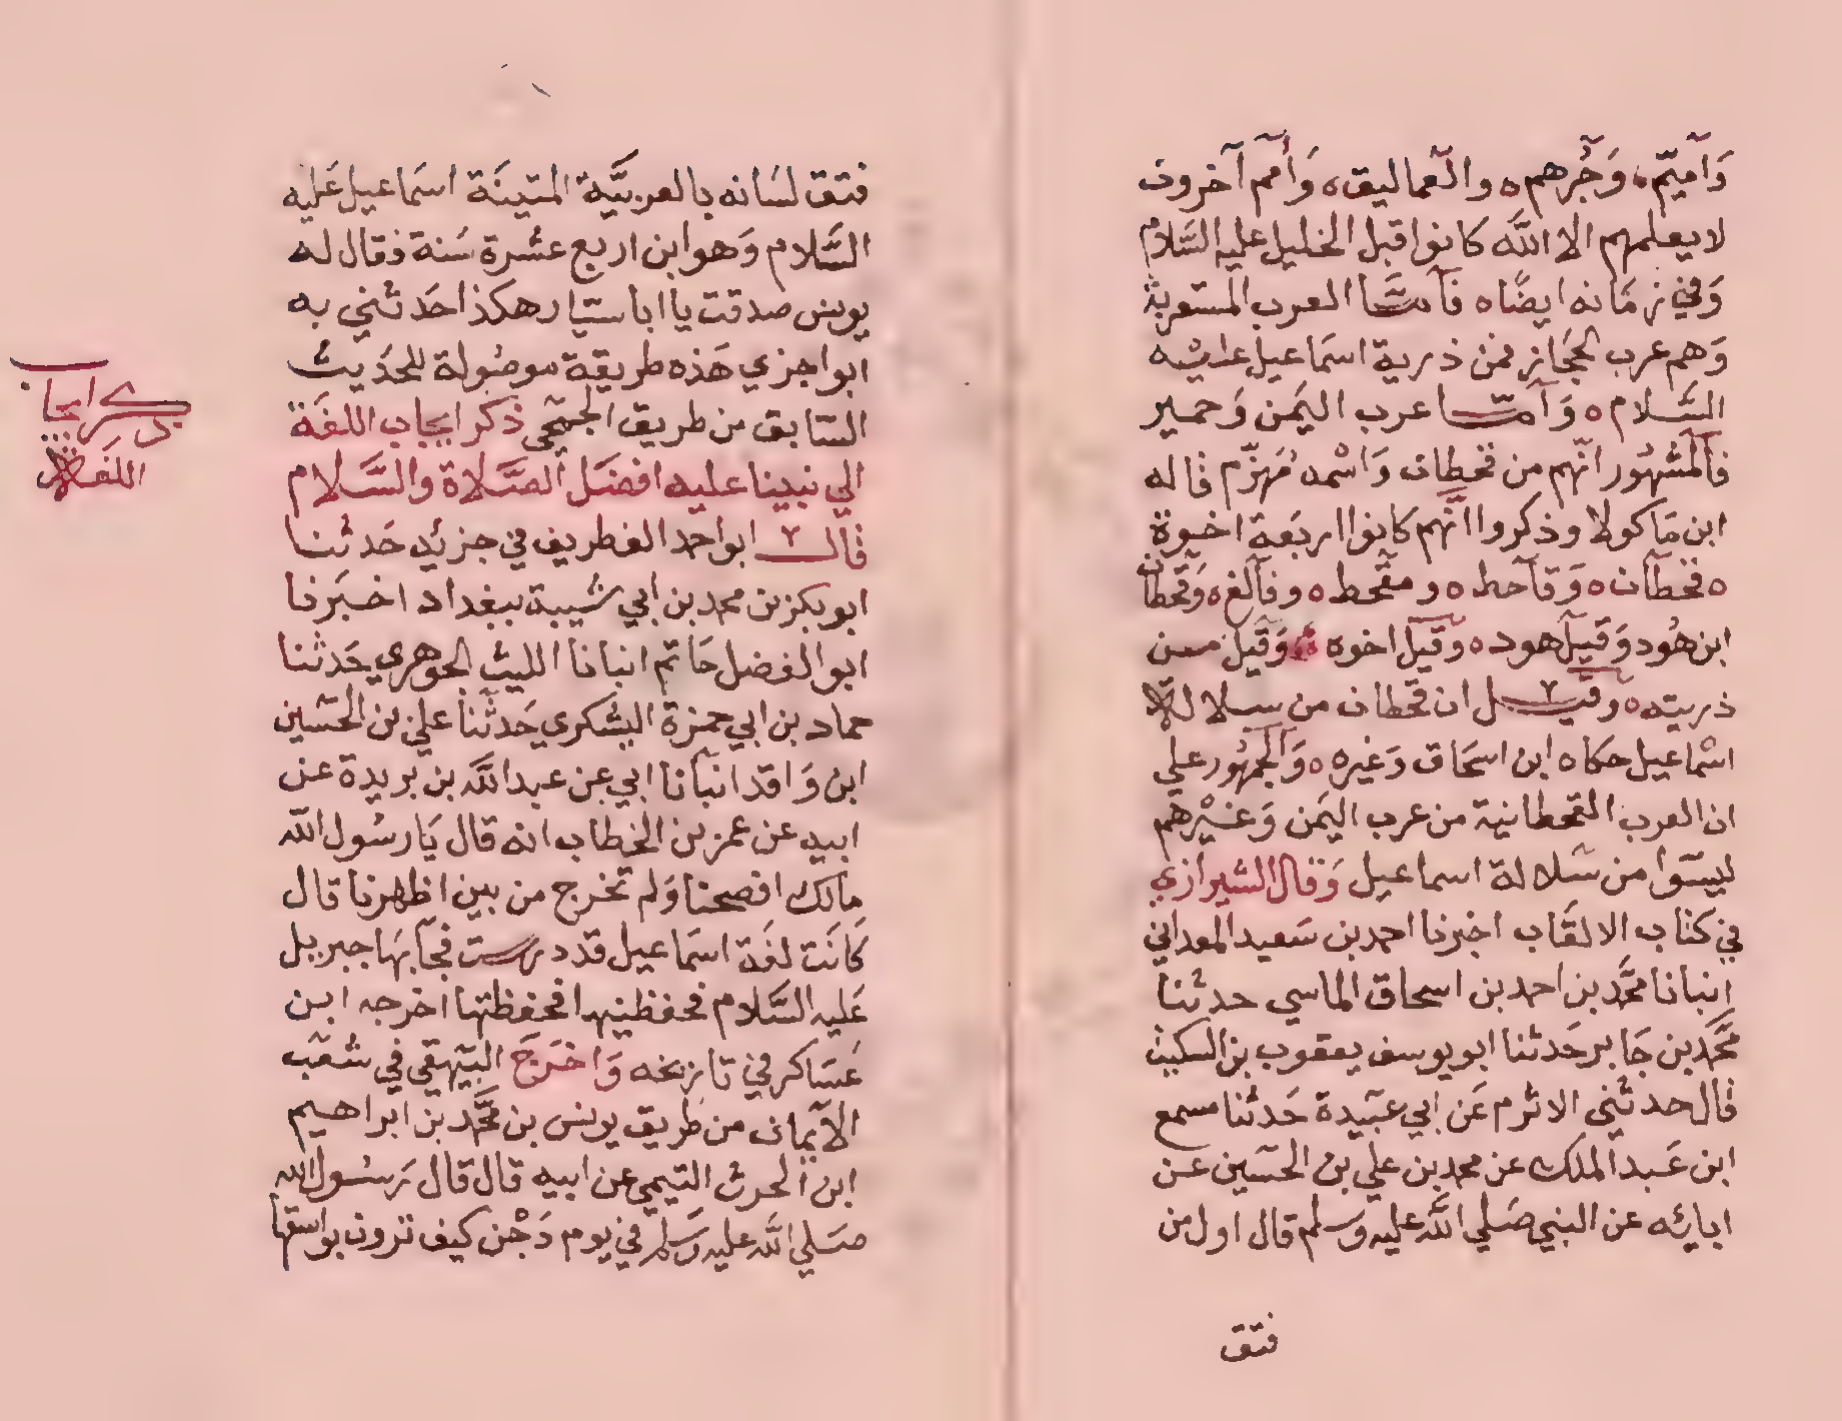 وَأميّم ه وَجُرهم ه والعماليق ه وَأمم آخرون
لا يعلمهم الا الله كانوا قبل الخليل عليه السَّلام
وَفي زمَانه ايضًا ه فأمّا العرب المستعربة
وَهم عرب الحجَاز فمن ذرية اسمَاعيل عليه
السَّلام ه وَأمّا عرب اليَمن وَحمير
فالمشهُور انّهم من قحطان وَاسْمه مُهزّم قاله
ابن مَاكولا وذكروا انَّهم كانوا اربَعة اخوة
ه قحطان ه وَقاحط ه و مقحط ه وفالغ ه وَقحطان
ابن هُود وَقيل هود ه وَقيل اخوه ه وَقيل من
ذريته ه وقيل ان قحطان من سلالة
اسْماعيل حكاه ابن اسحَاق وَغيره ه وَالجمهُور علي
ان العرب القحطانية من عرب اليَمن وَغيْرهم
ليسَوا من سَلالة اسماعيل وَقال الشيرازي
في كتاب الالقَاب اخبرنا احمد بن سَعيد المعداني
انبانا محمَّد بن احمد بن اسحاق الماسي حدثنا
محمَّد بن جَابر حَدثنا ابو يوسف يعقوب بن السكيت
قال حدثني الاثرم عَن ابي عبَيدة حَدثنا مسمع
ابن عَبد الملك عن محمد بن علي بن الحسَين عن
ابائه عن النبي صَلي الله عليه وَسلم قال اول من
فتق
فتق لسَانه بالعربيَّة المتينَة اسمَاعيل عَليه
السَّلام وَهو ابن اربع عشرة سَنة فقال له
يونس صدقت يا ابا سيّار هكذا حَدثني به
ابو اجزي هَذه طريقة موصُولة للحَديث
السَّابق من طريق الجمحي ذكر ايجاب اللغَة
الي نبينا عليه افضَل الصَّلاة والسَّلام
قال ابو احمد الغطريف في جزئه حَدثنا
ابو بكر بن محمد بن ابي شيبة ببغداد اخبَرنا
ابو الفضل حَاتم انبانا الليث الجوهري حَدثنا
حماد بن ابي حمزة اليشكري حَدثنا علي بن الحسَين
ابن وَاقد انبَانا ابي عن عبد الله بن بريدة عن
ابيه عن عمر بن الخطاب انه قال يَا رسُول الله
مالك افصحنا وَلم تخرج من بين اظهرنا قال
كانَت لغَة اسمَاعيل قد درست فجَا بهَا جبريل
عَليه السَّلام فحفظنيها فحفظتها اخرجه ابن
عَسَاكر في تاريخه وَاخرَجَ البَيهقي في شعَب
الايمان من طريق يونس بن محمَّد بن ابراهيم
ابن الحرث التيمي عن ابيه قال قال رَسُول الله
صَلي الله عليه وَسَلم في يوم دَجْن كيف ترون بواسقها
ذكر ايجاب
اللغة